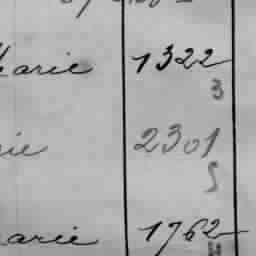 arie 1322
3
rie 2301
5
arie 1762